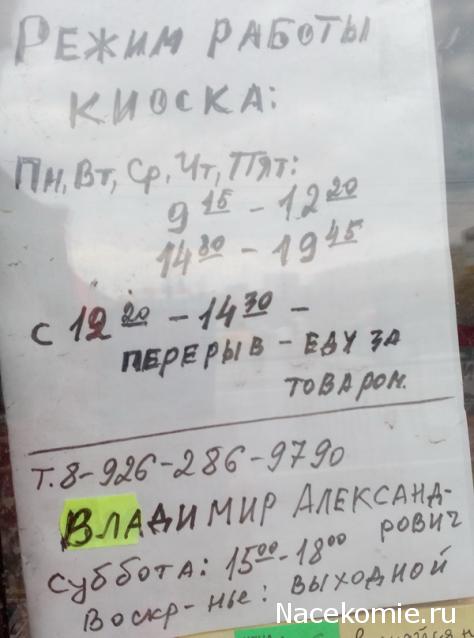 РЕЖИМ РАБОТЫ
КИОСКА:
Пн, Вт, Ср, Чт, Пят:
9 15 – 12 20
14 30 – 19 45
С 12 20 – 14 30 –
ПЕРЕРЫВ – ЕДУ ЗА
ТОВАРОМ.
Т. 8-926-286-9790
ВЛАДИМИР АЛЕКСАНД-
РОВИЧ
Суббота: 15 00 - 18 00
Воскр-нье: выходной
Nacekomie.ru